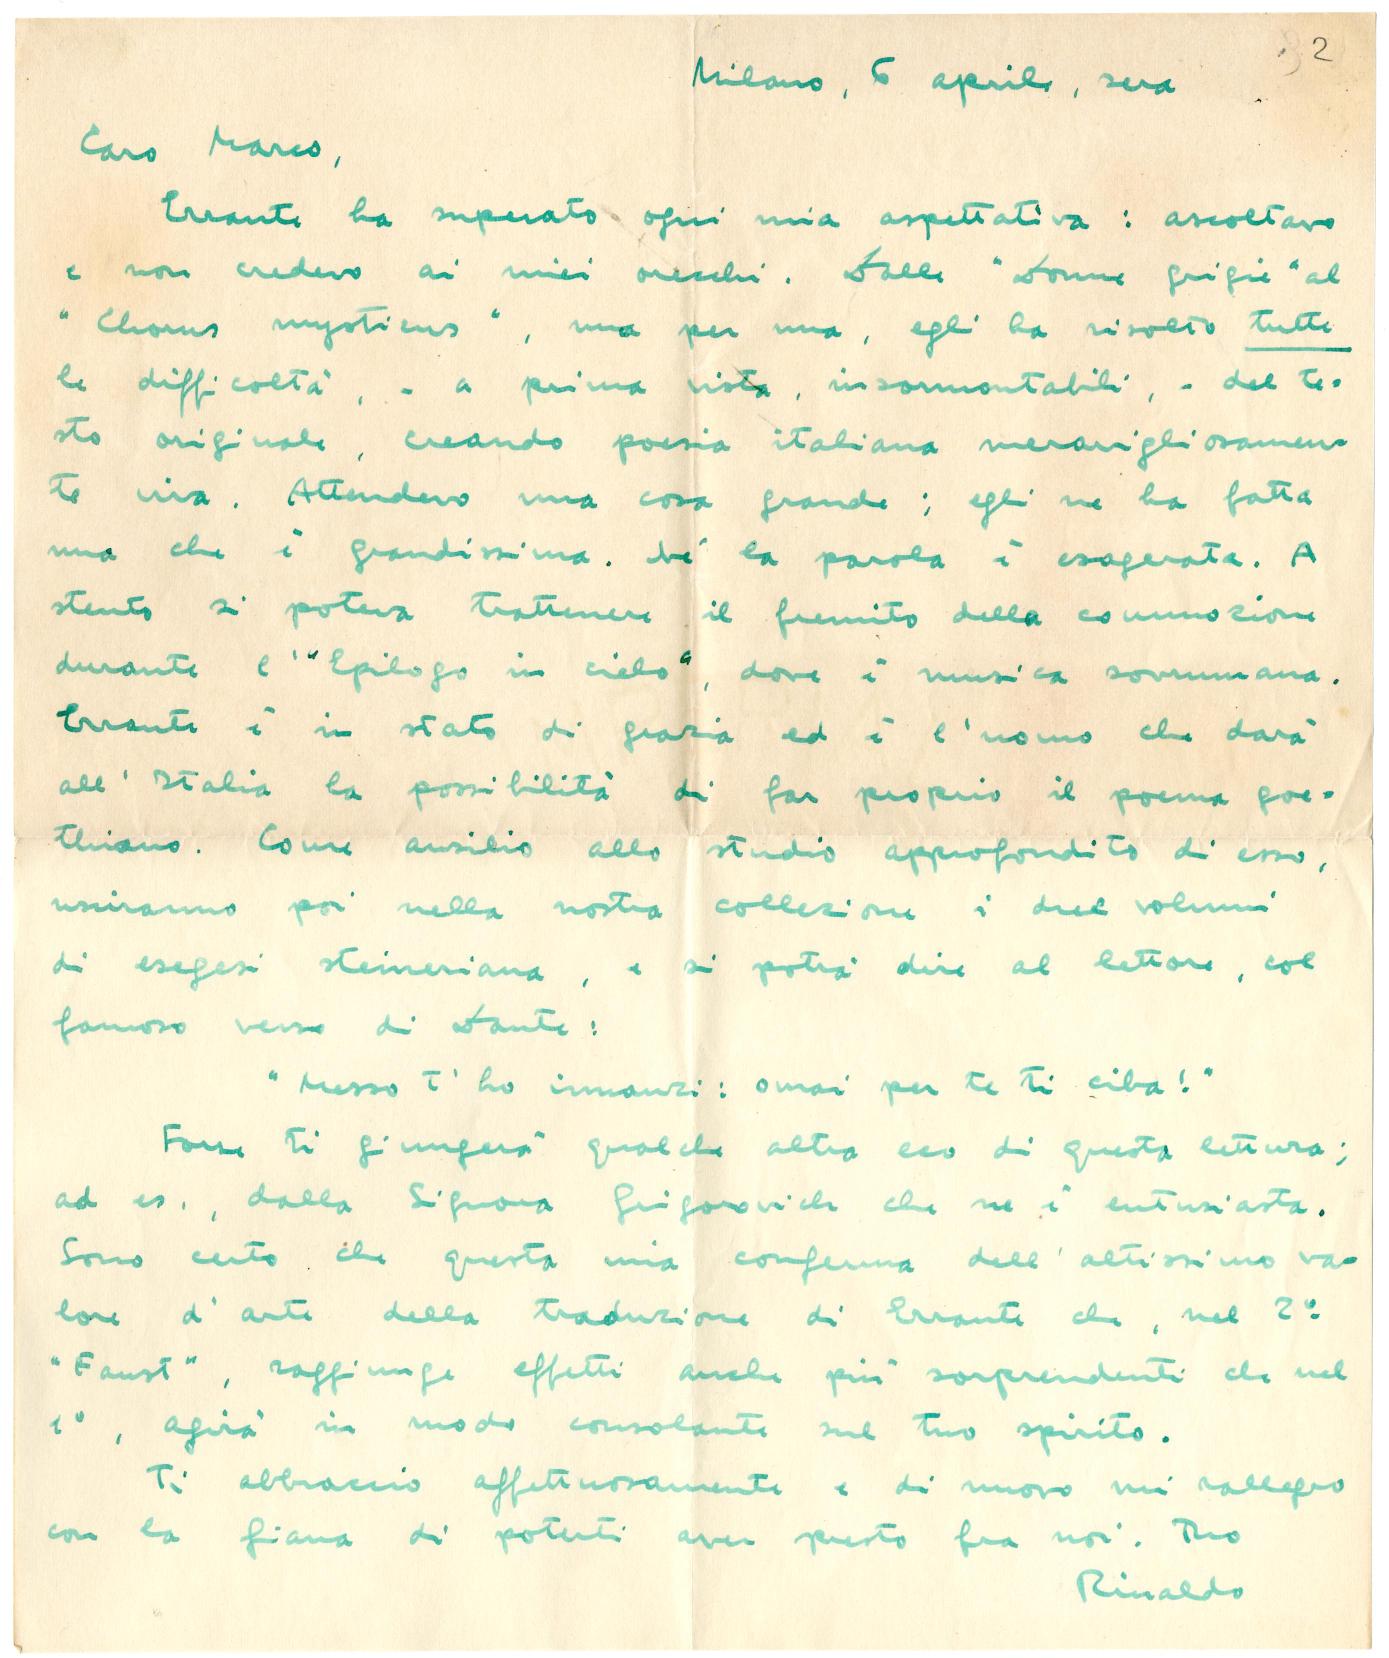 2
Milano, 6 aprile, sera
Caro Marco,
Errante ha superato ogni mia aspettativa: ascoltavo
e non credevo ai miei orecchi. Dalle "Donne grigie" al
"Chorus mysticus", una per una, egli ha risolto tutte
le difficoltà, - a prima vista, insormontabili, - del te-
sto originale, creando poesia italiana meravigliosamen-
te viva. Attendevo una cosa grande; egli ne ha fatta
una che è grandissima. Nè la parola è esagerata. A
stento si poteva trattenere il fremito della commozione
durante l'"Epilogo in cielo", dove è musica sovrumana.
Errante è in stato di grazia ed è l'uomo che darà
all'Italia la possibilità di far proprio il poema goe-
thiano. Come ausilio allo studio approfondito di esso,
usciranno poi nella nostra collezione i due volumi
di esegesi steineriana, e si potrà dire al lettore, col
famoso verso di Dante:
"Messo t'ho innanzi: omai per te ti ciba!"
Forse ti giungerà qualche altra eco di questa lettura;
ad es., dalla Signora Grigorovich che ne è entusiasta.
Sono certo che questa mia conferma dell'altissimo va-
lore d'arte della traduzione di Errante che, nel 2º
"Faust", raggiunge effetti anche più sorprendenti che nel
1º, agirà in modo consolante sul tuo spirito.
Ti abbraccio affettuosamente e di nuovo mi rallegro
con la Giana di poterti aver presto fra noi. Tuo
Rinaldo